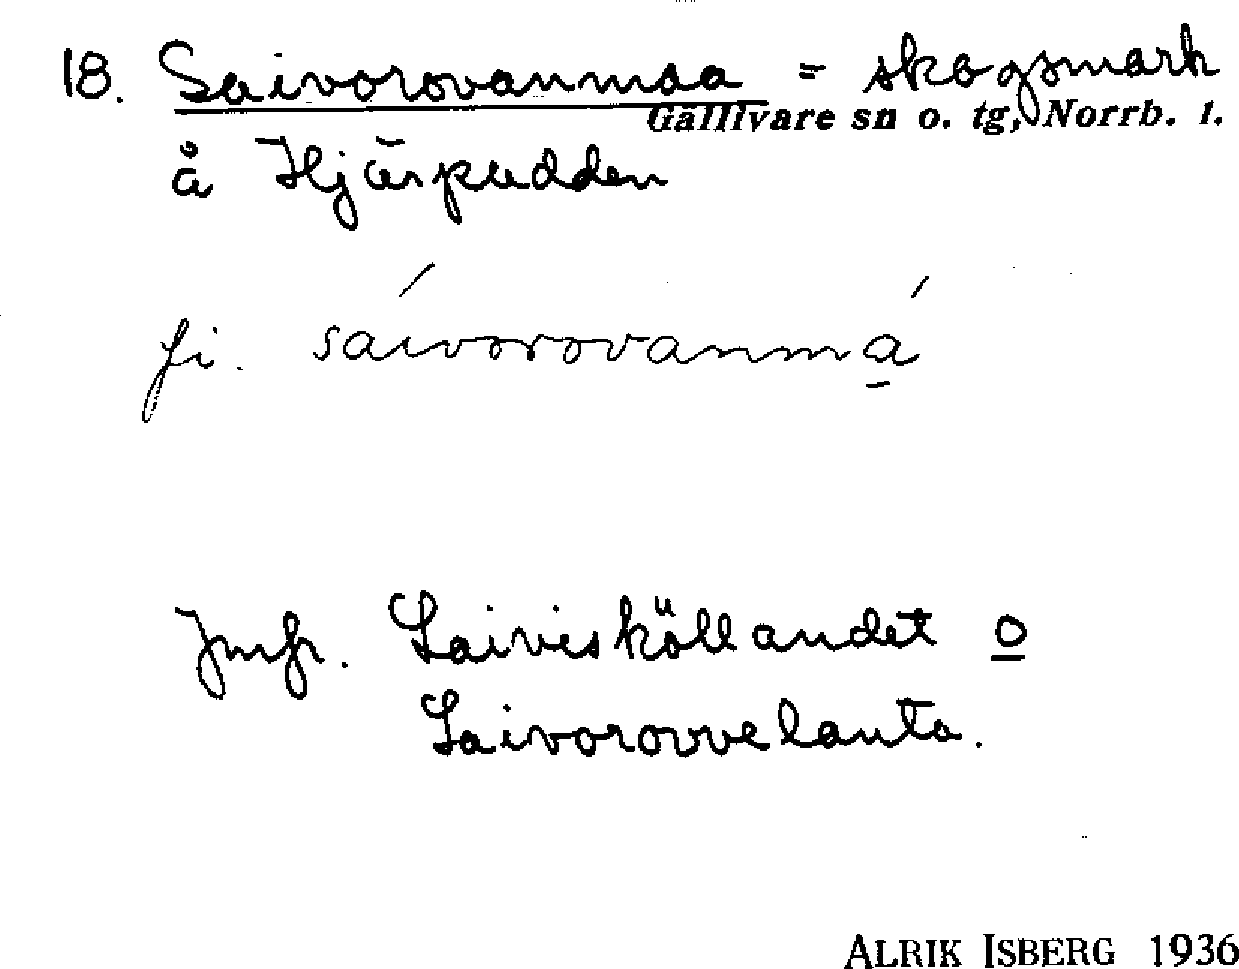 18. Saivorovanmaa = skogsmark
Gällivare sn o. tg, Norrb. l.
å Hjärpudden
fi. sáivorovanmá̱
Jmfr. Saivisköllandet o
Saivorovvelanta.
ALRIK ISBERG 1936